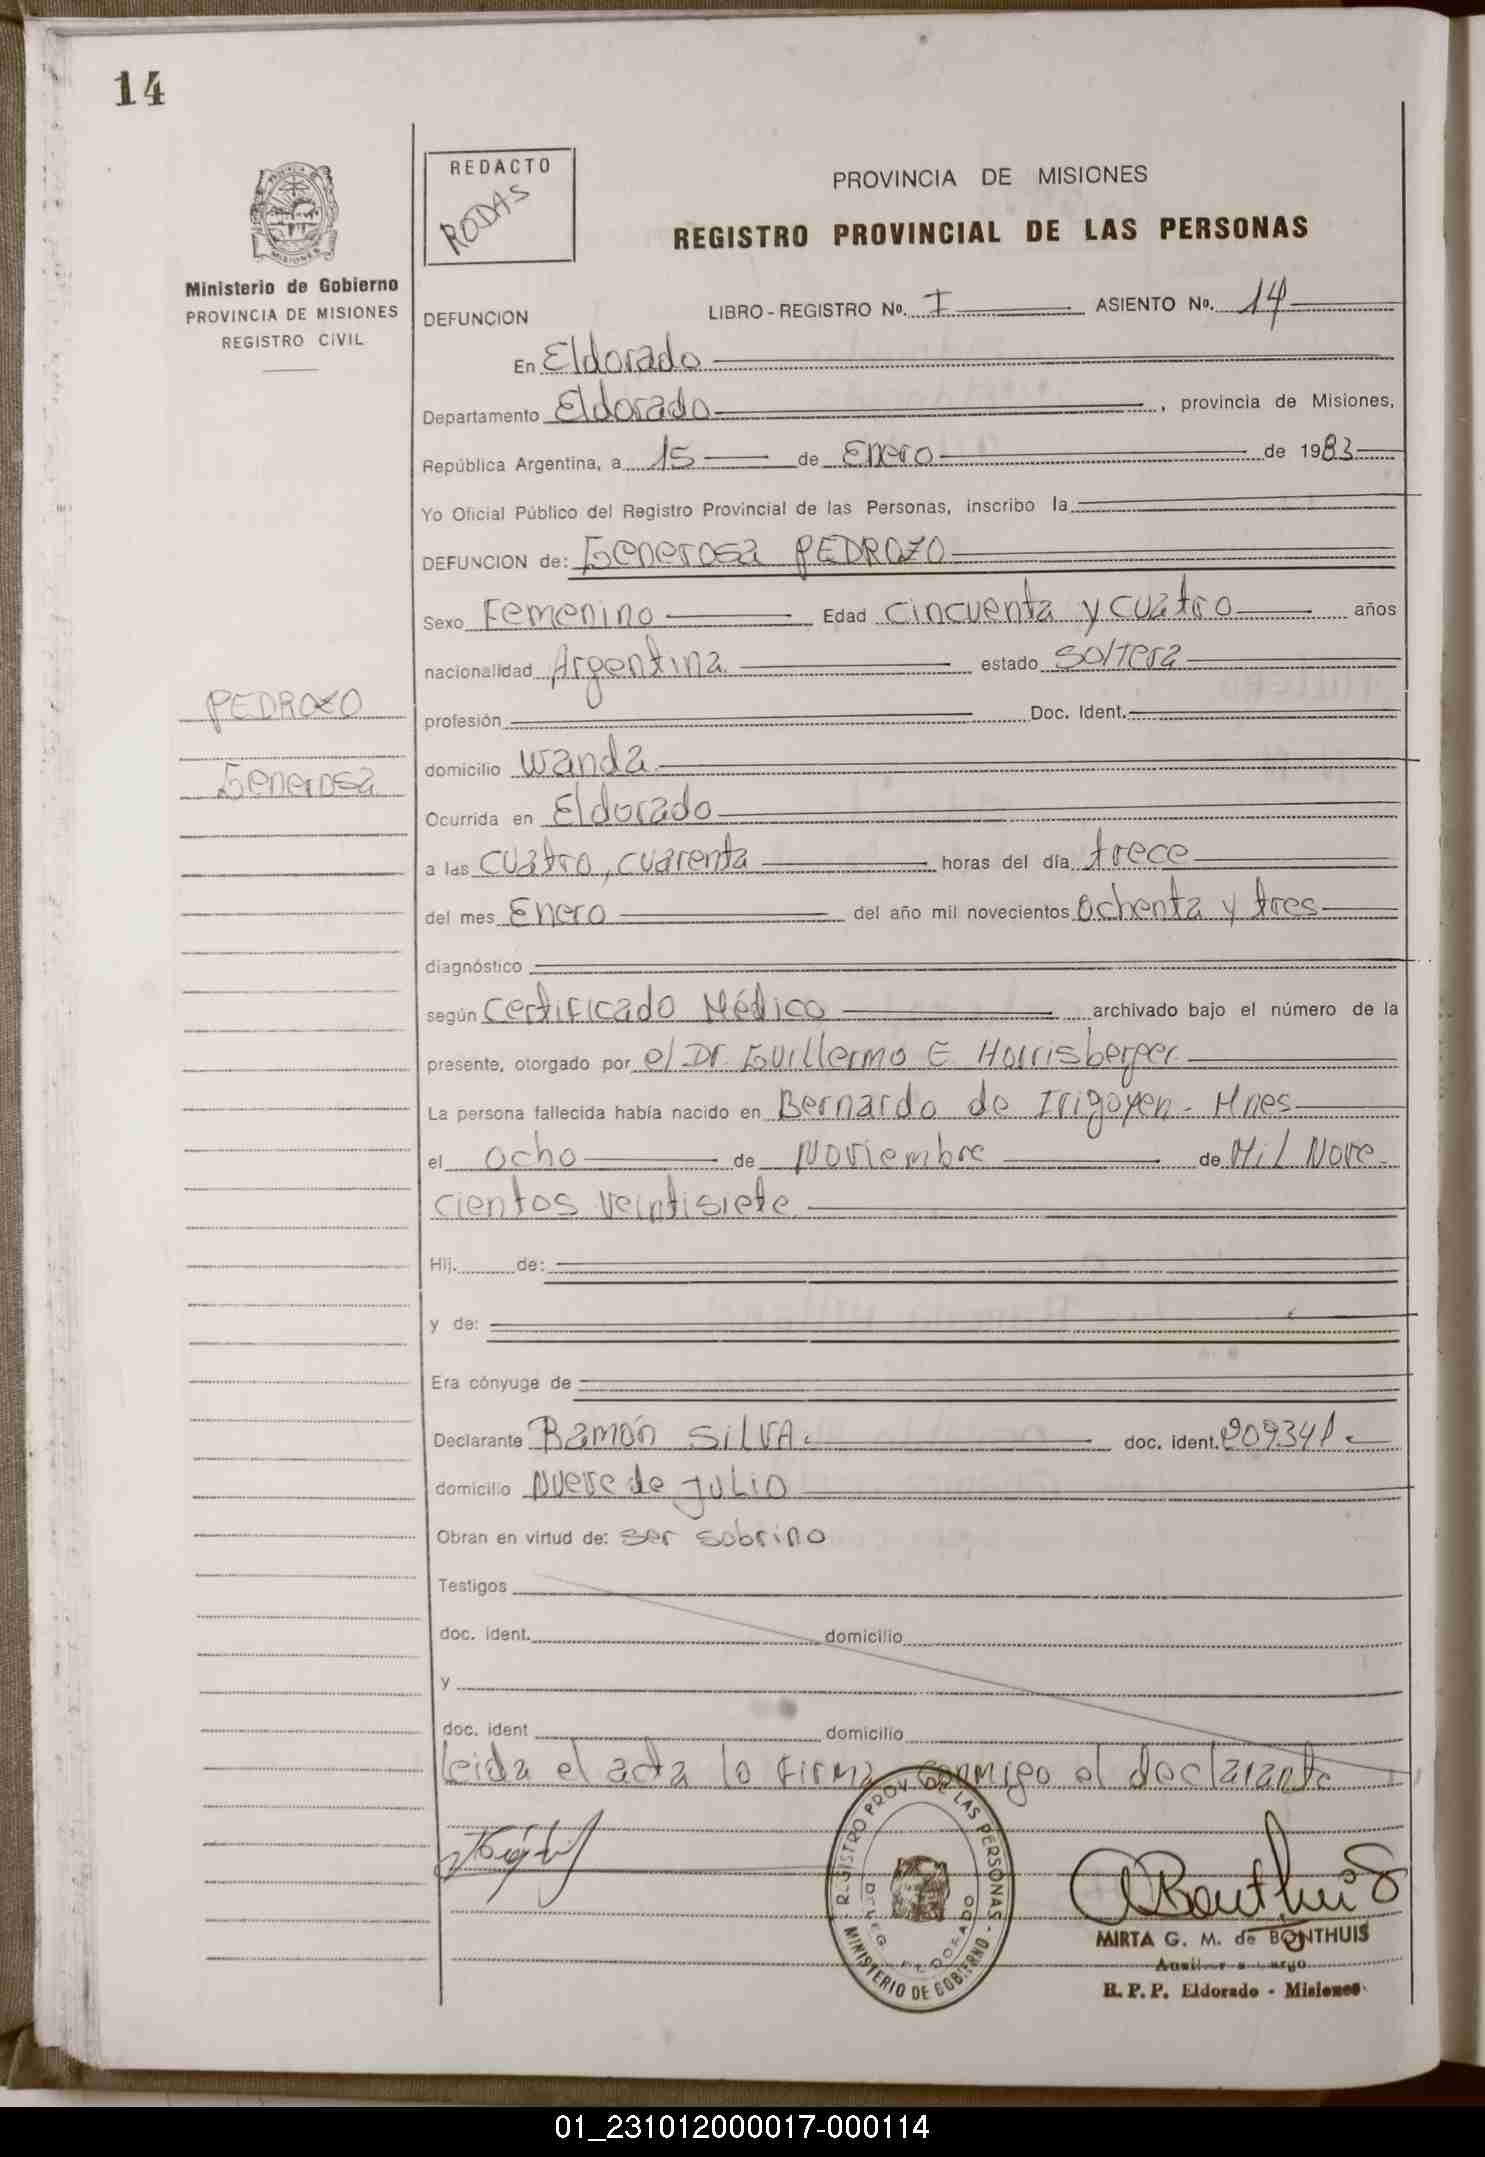 14
REDACTO
RODAS
PROVINCIA DE MISIONES
REGISTRO PROVINCIAL DE LAS PERSONAS
Ministerio de Gobierno
PROVINCIA DE MISIONES
REGISTRO CIVIL
DEFUNCION LIBRO - REGISTRO Nº. I ASIENTO Nº. 14
En Eldorado
Departamento Eldorado, provincia de Misiones,
República Argentina, a 15 de Enero de 1983
Yo Oficial Público del Registro Provincial de las Personas, inscribo la
DEFUNCION de: Generosa PEDROZO
Sexo Femenino Edad cincuenta y cuatro años
nacionalidad Argentina estado Soltera
PEDROZO
Generosa
profesión Doc. Ident.
domicilio Wanda
Ocurrida en Eldorado
a las cuatro, cuarenta horas del día trece
del mes Enero del año mil novecientos ochenta y tres
diagnóstico
según Certificado Médico archivado bajo el número de la
presente, otorgado por el Dr. Guillermo E Horrisberger
La persona fallecida había nacido en Bernardo de Irigoyen - Mnes
el ocho de Noviembre de Mil Nove-
cientos veintisiete
Hij. de:
y de:
Era cónyuge de
Declarante Ramón SILVA. doc. ident.
domicilio Nueve de Julio
Obran en virtud de: ser sobrino
Testigos
doc. ident. domicilio
y
doc. ident domicilio
leida el acta lo firma conmigo el declarante
REGISTRO PROV. DE LAS PERSONAS - MINISTERIO DE GOBIERNO
ELDORADO
MIRTA G. M. de BONTHUIS
R. P. P. Eldorado - Misiones
01_231012000017-000114